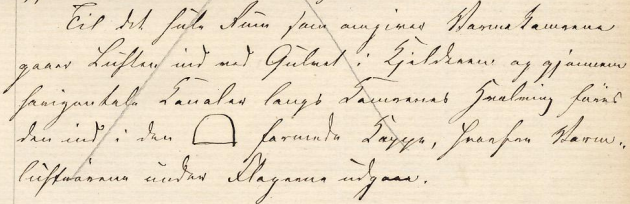 Til det hule Rum som omgiver Varmekamrene
gaaer Luften ind ved Gulvet i Kjelderen og gjennem
horizontale Kanaler langs Kamrenes Hvælving føres
den ind i den formede Kappe, hvorfra Varm-
luftrørene under Flagerne udgaae.